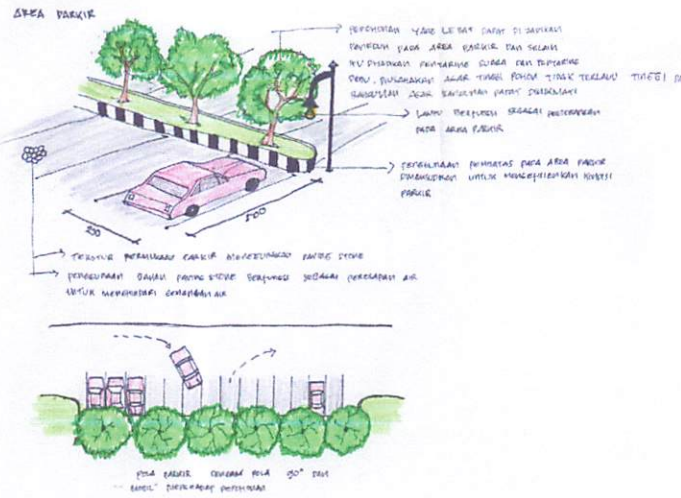 AREA PARKIR
PEPOHONAN YANG LEBAT DAPAT DIJADIKAN
PADA AREA PARKIR DAN SELAIN
ITU DIJADIKAN PENYARING SUARA DAN PENYARING
DEBU. DIUSAHAKAN AGAR TINGGI POHON TIDAK TERLALU TINGGI
AGAR BANGUNAN DAPAT DINIKMATI
LAMPU BERFUNGSI SEBAGAI PENERANGAN
PADA AREA PARKIR
PENGGUNAAN PEMBATAS PADA AREA PARKIR
DIMAKSUDKAN UNTUK
PARKIR
250
500
TEKSTUR PERMUKAAN PARKIR MENGGUNAKAN PAVING STONE
PENGGUNAAN BAHAN PAVING STONE BERFUNGSI SEBAGAI PERESAPAN AIR
UNTUK MENGHINDARI GENANGAN AIR
POLA PARKIR DENGAN POLA 90° DAN
MOBIL MENGHADAP PEPOHONAN